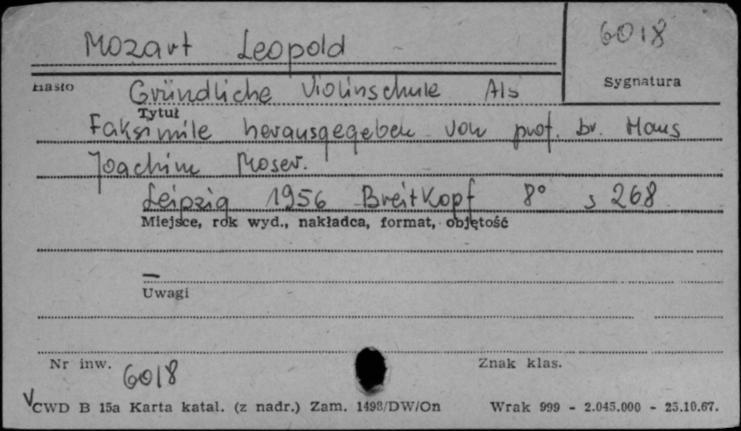 Mozart Leopold
6018
Hasło
Sygnatura
Gründliche Violinschule Als
Tytuł
Faksimile herausgegeben von prof. Dr. Hans
Joachim Moser.
Leipzig 1956 Breitkopf 8° s 268
Miejsce, rok wyd., nakładca, format, objętość
—
Uwagi
Nr inw. 6018
Znak klas.
CWD B 15a Karta katal. (z nadr.) Zam. 1498/DW/On Wrak 999 - 2.045.000 - 25.10.67.